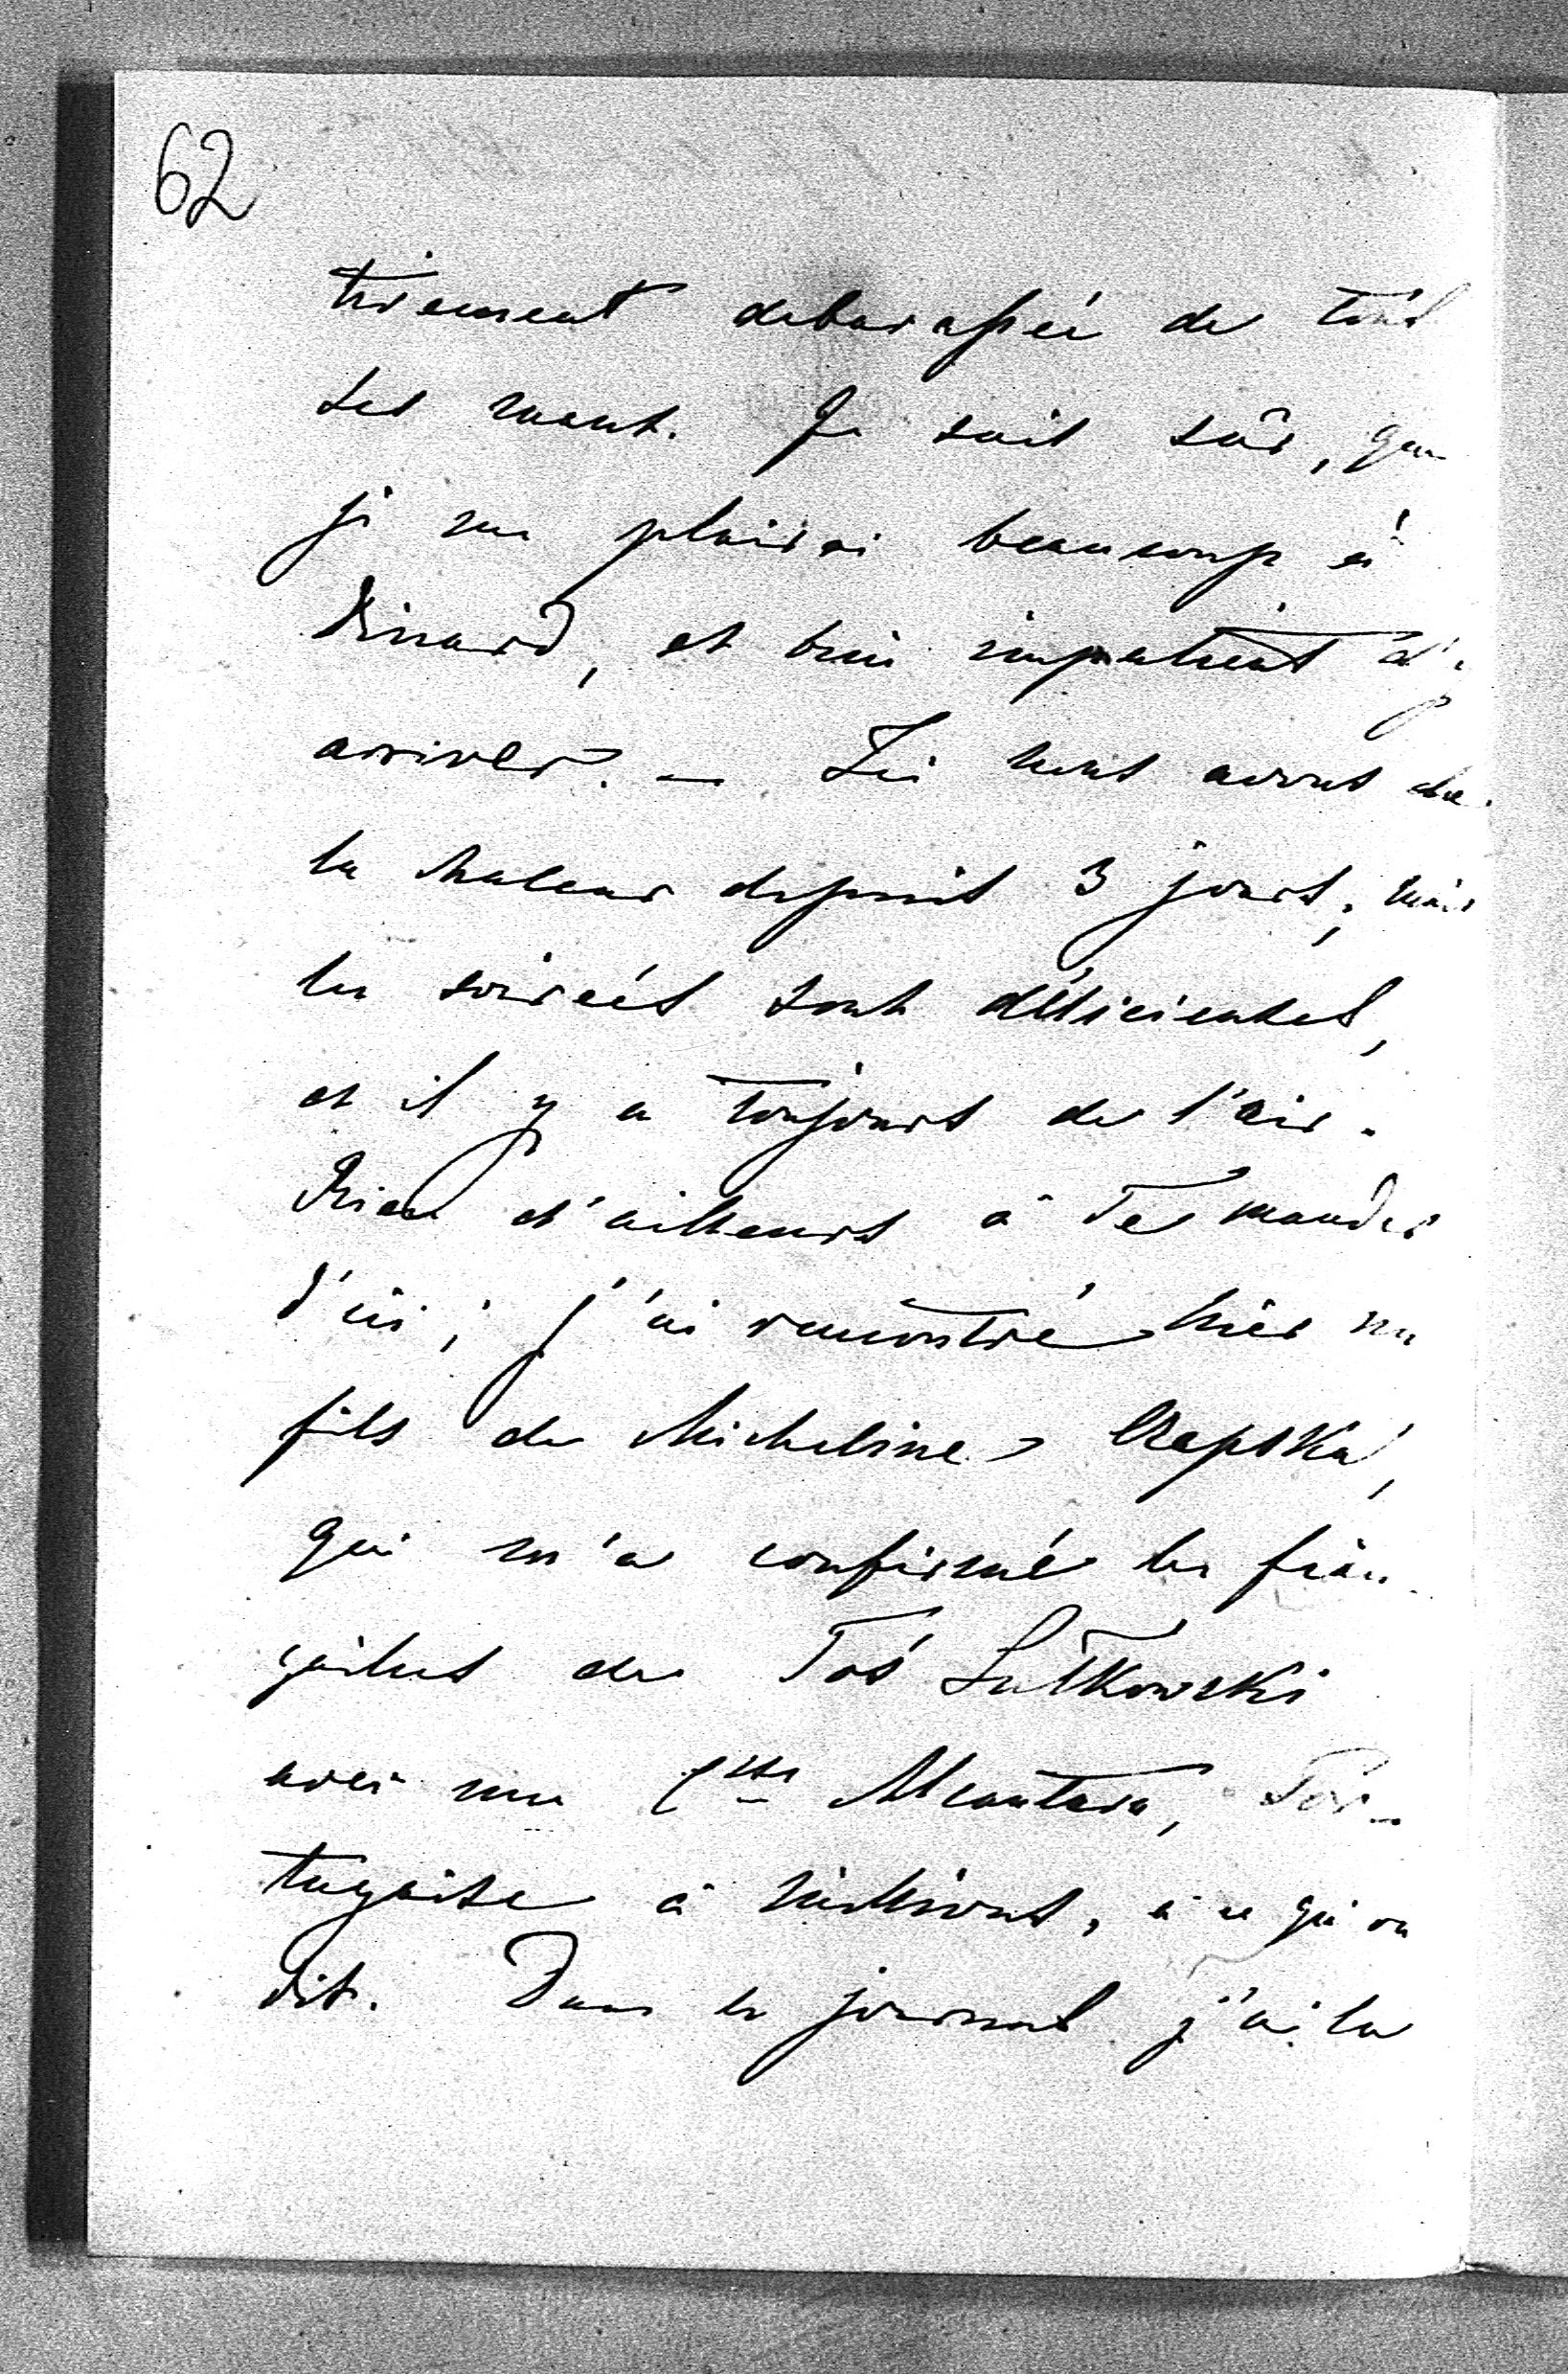 62
tirement debarassée de tous
ses maux. Je suis sûr, que
je me plairai beaucoup à
Dinard, et bien impatient d'y
arriver. — Ici nous avons de
la chaleur depuis 3 jours, mais
les soirées sont délicieuses,
et il y a toujours de l'air.
Rien d'ailleurs à Te mander
d'ici; j'ai rencontré hier un
fils de Micheline Czapska,
qui m'a confirmé les fian-
çailles de Toś Sułkowski
avec une Ctsse Alcantara, Por-
tugaise à millions, à ce qu'on
dit. Dans les journaux j'ai lu